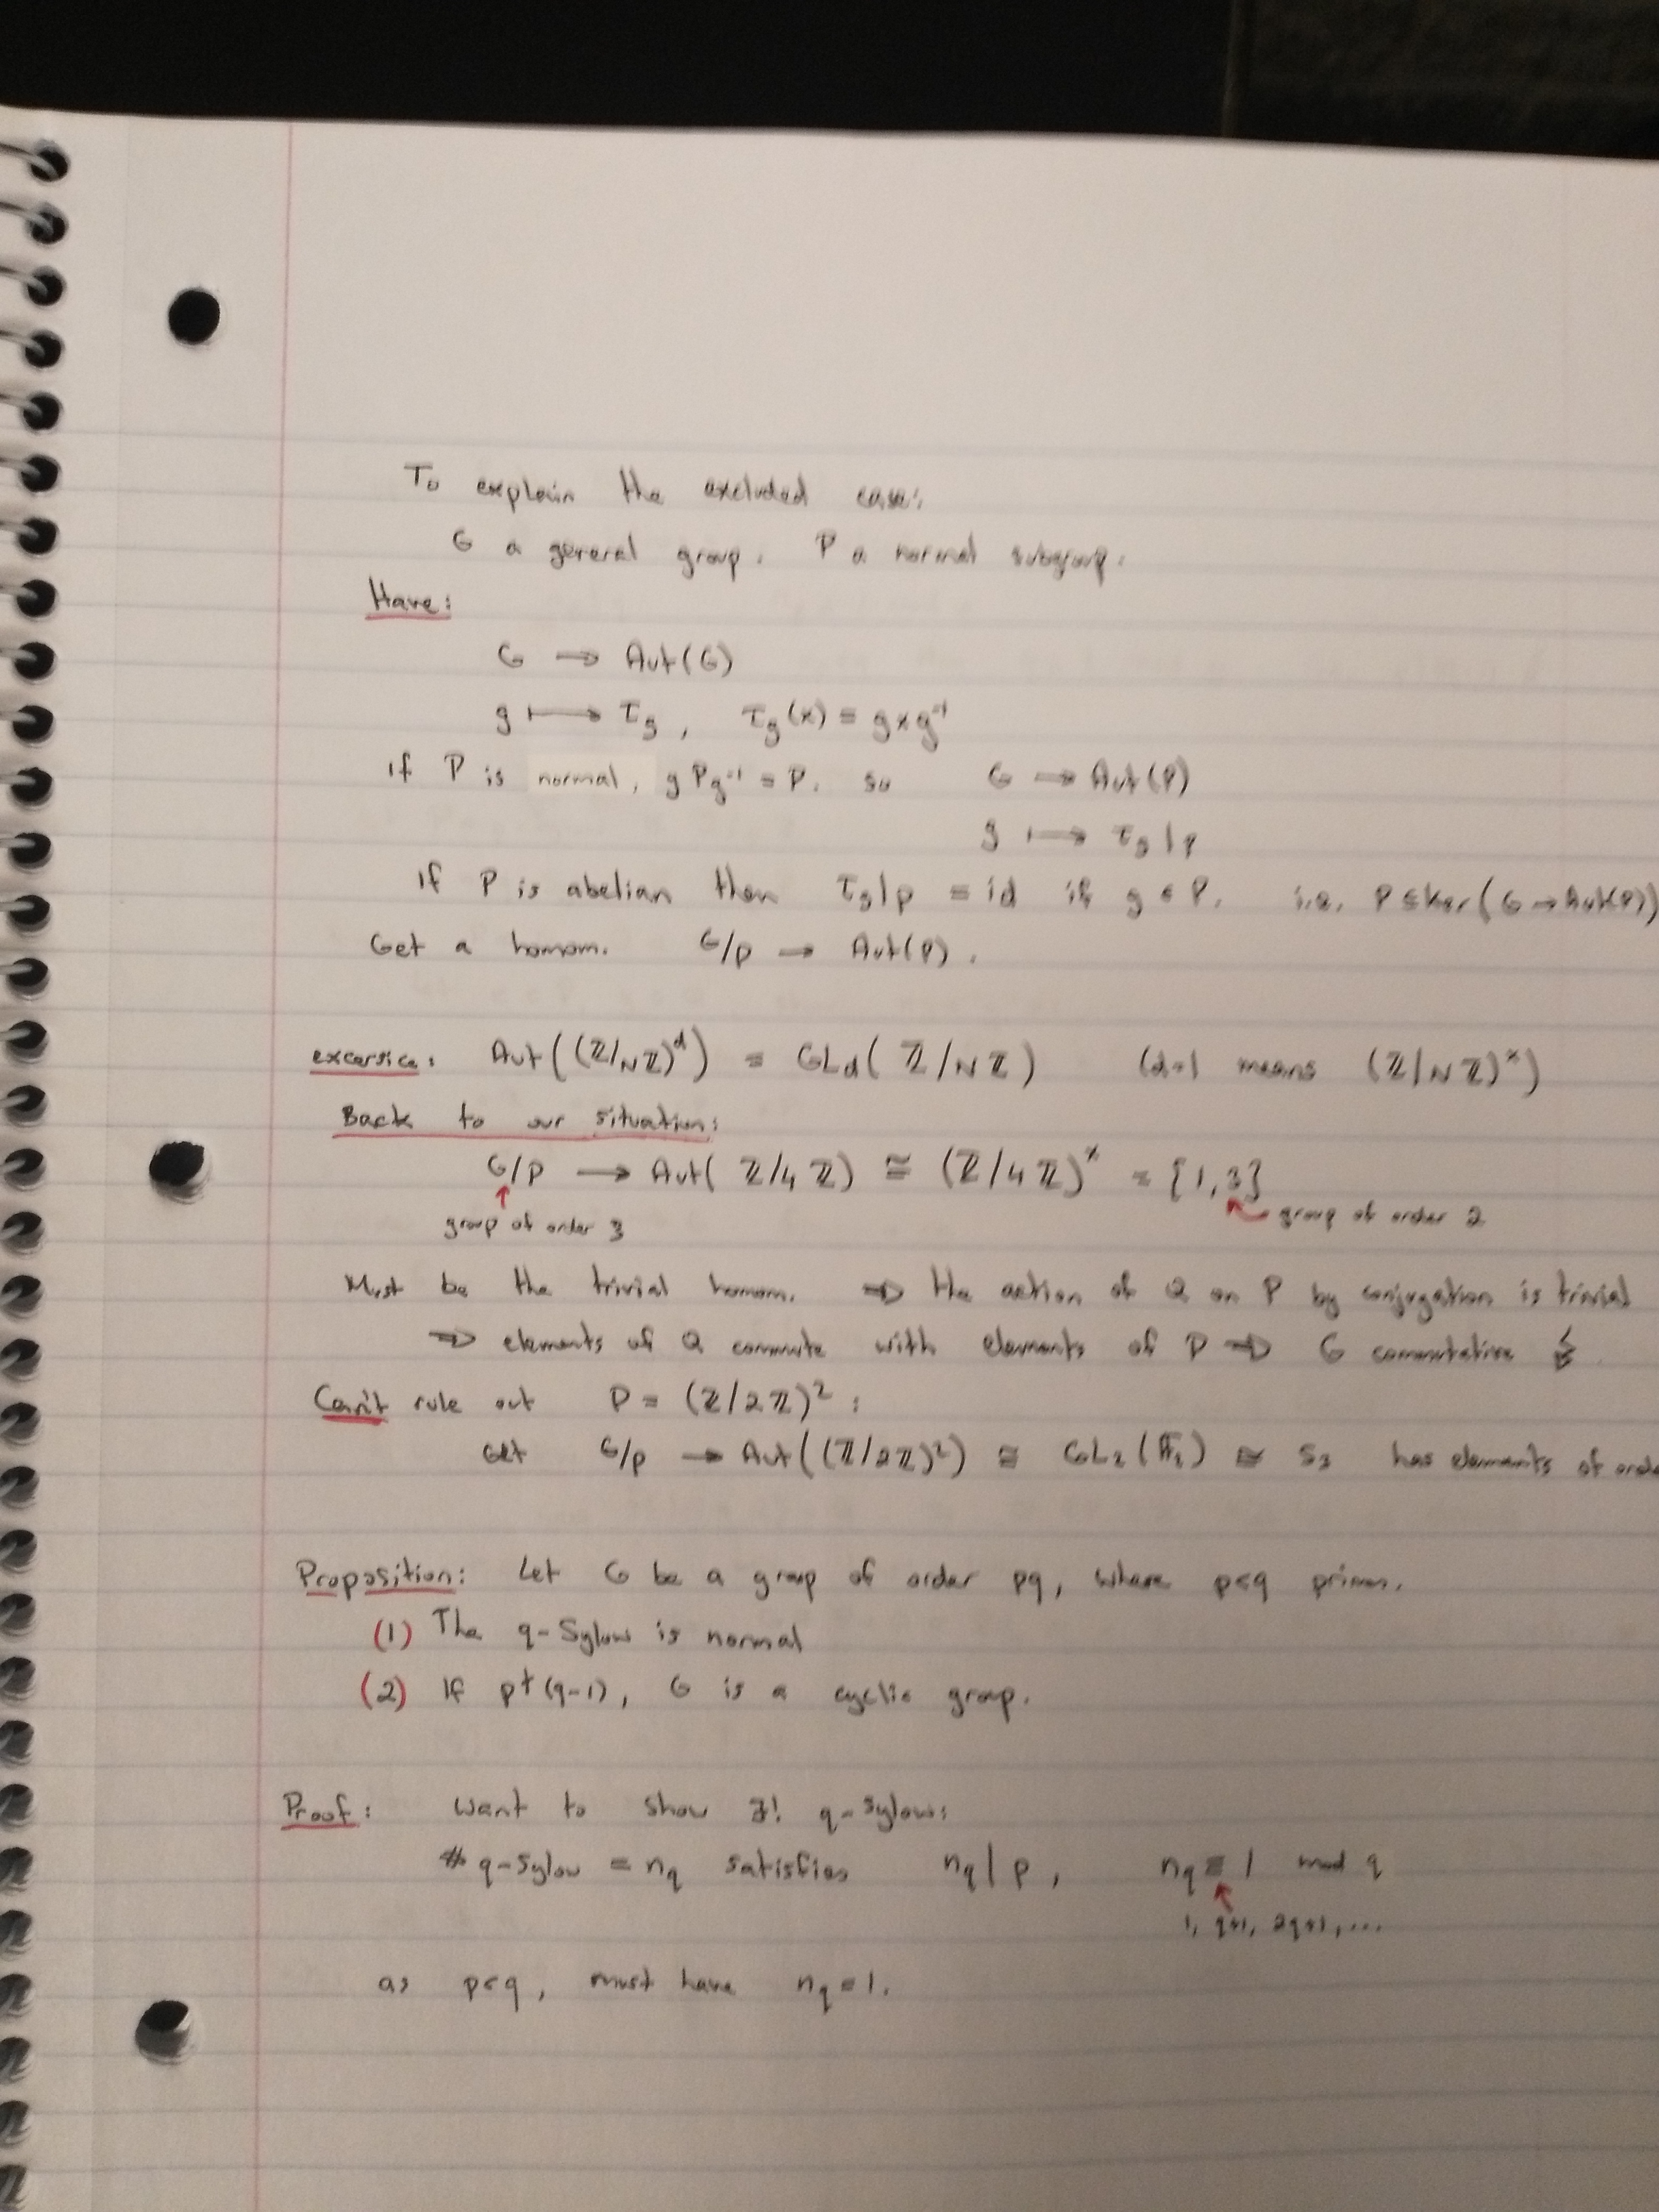 To explain the excluded case:
G a general group. P a normal subgroup.
Have:
G → Aut(G)
g ⟼ τg, τg(x) = gxg⁻¹
If P is normal, gPg⁻¹ = P. so G → Aut(P)
g ⟼ τg|P
If P is abelian then τg|P = id if g ∈ P. i.e. P ⊆ ker(G → Aut(P))
Get a homom. G/P → Aut(P).
excersice: Aut((ℤ/Nℤ)ᵈ) = GLd(ℤ/Nℤ) (d=1 means (ℤ/Nℤ)ˣ)
Back to our situation:
G/P → Aut(ℤ/4ℤ) ≅ (ℤ/4ℤ)ˣ = {1,3}
group of order 3 group of order 2
Must be the trivial homom. ⇒ the action of Q on P by conjugation is trivial
⇒ elements of Q commute with elements of P ⇒ G commutative ↯
Can't rule out P = (ℤ/2ℤ)²:
Get G/P → Aut((ℤ/2ℤ)²) ≅ GL₂(𝔽₂) ≅ S₃ has elements of
Proposition: Let G be a group of order pq, where p<q primes.
(1) The q-Sylow is normal
(2) If p∤(q-1), G is a cyclic group.
Proof: Want to show ∃! q-Sylow:
# q-Sylow = nq satisfies nq | p, nq ≡ 1 mod q
1, q+1, 2q+1, ...
as p<q, must have nq = 1.